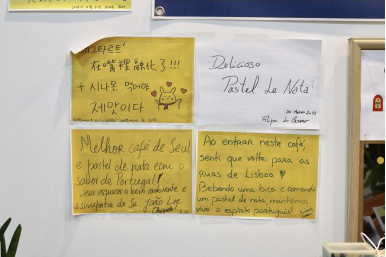 에그타르트!
在嘴裡融化了!!!
+ 시나몬 먹어야
제맛이다
Delicioso
Pastel de Nata!
Melhor café de Seul
e pastel de nata com o
sabor de Portugal!
o bom ambiente e
a simpatia do Sr. João Lee
Ao entrar neste café,
senti que voltei para as
ruas de Lisboa
Bebendo uma bica e comendo
um pastel de nata, mantemos
vivo o espírito português!